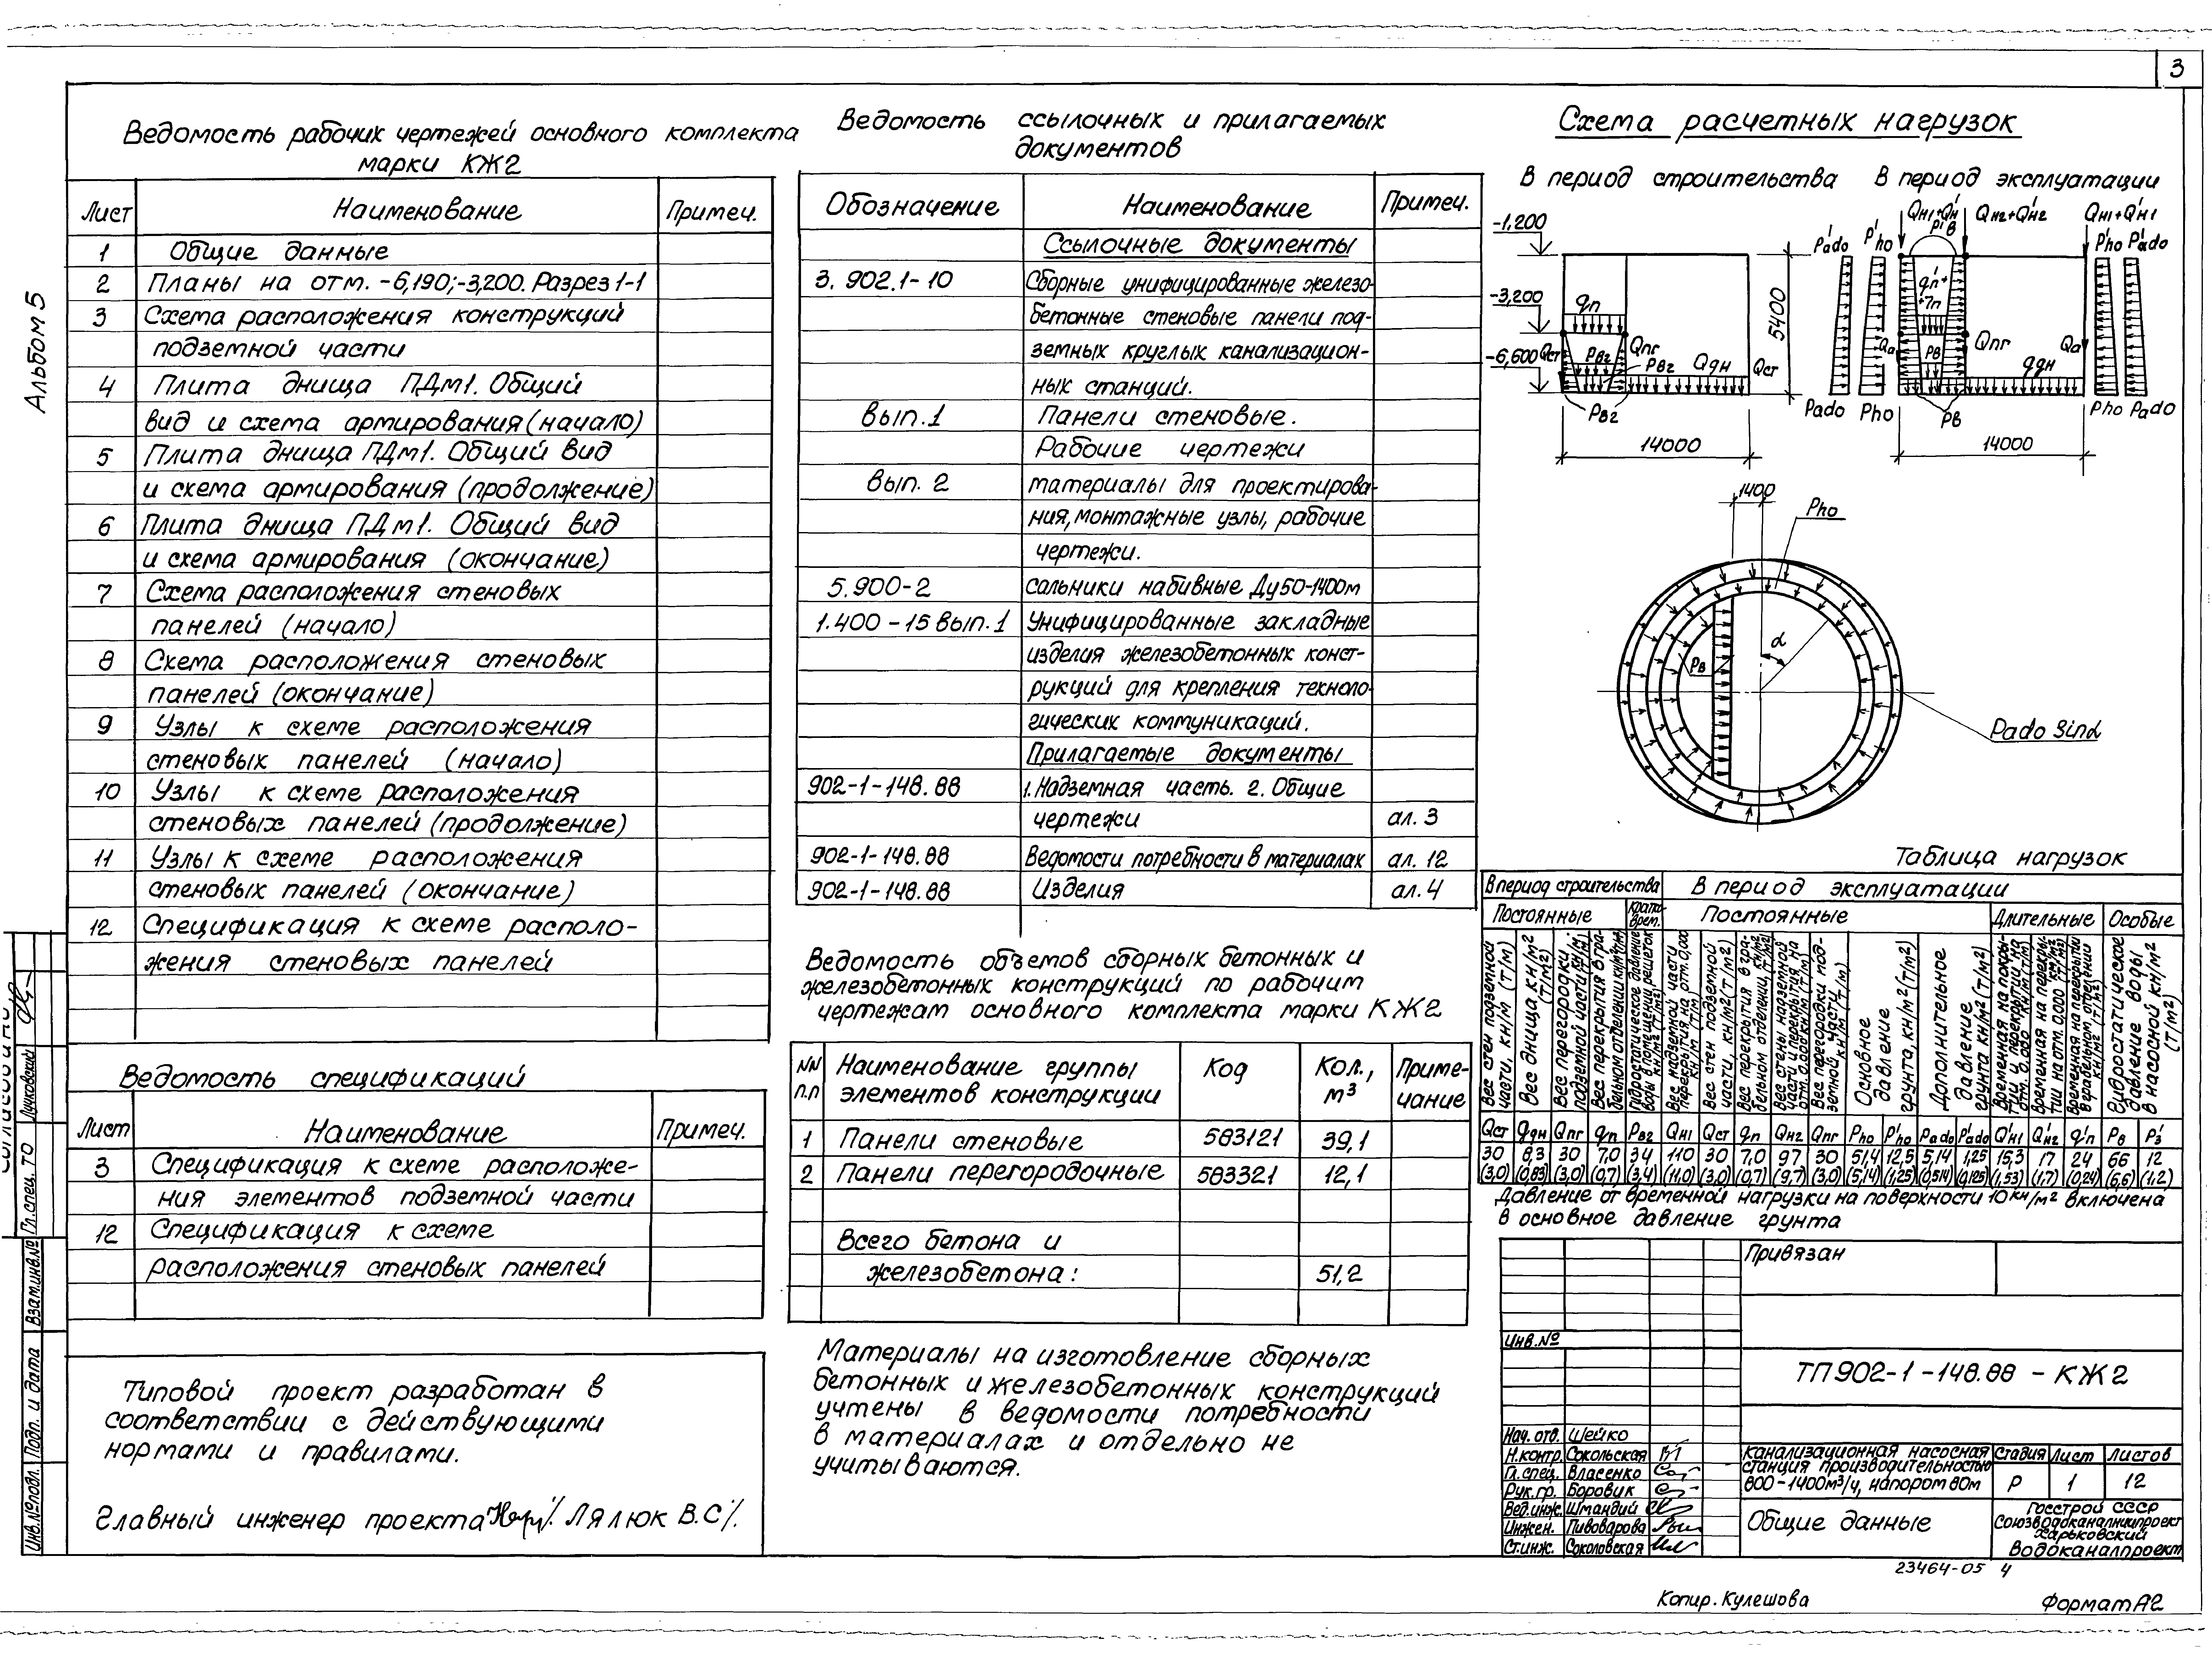 3
Альбом 5
Ведомость рабочих чертежей основного комплекта
марки КЖ2
Лист Наименование Примеч.
1 Общие данные
2 Планы на отм. -6,190; -3,200. Разрез 1-1
3 Схема расположения конструкций
подземной части
4 Плита днища ПДм1. Общий
вид и схема армирования (начало)
5 Плита днища ПДм1. Общий вид
и схема армирования (продолжение)
6 Плита днища ПДм1. Общий вид
и схема армирования (окончание)
7 Схема расположения стеновых
панелей (начало)
8 Схема расположения стеновых
панелей (окончание)
9 Узлы к схеме расположения
стеновых панелей (начало)
10 Узлы к схеме расположения
стеновых панелей (продолжение)
11 Узлы к схеме расположения
стеновых панелей (окончание)
12 Спецификация к схеме располо-
жения стеновых панелей
Ведомость спецификаций
Лист Наименование Примеч.
3 Спецификация к схеме расположе-
ния элементов подземной части
12 Спецификация к схеме
расположения стеновых панелей
Типовой проект разработан в
соответствии с действующими
нормами и правилами.
Главный инженер проекта Лялюк В.С.
Гл.спец. ТО Лучковский
Взам.инв.№
Подп. и дата
Инв.№подл.
Ведомость ссылочных и прилагаемых
документов
Обозначение Наименование Примеч.
Ссылочные документы
3.902.1-10 Сборные унифицированные железо-
бетонные стеновые панели под-
земных круглых канализацион-
ных станций.
Вып.1 Панели стеновые.
Рабочие чертежи
Вып. 2 материалы для проектирова-
ния, монтажные узлы, рабочие
чертежи.
5.900-2 сальники набивные Ду50-1400м
1.400-15 вып.1 Унифицированные закладные
изделия железобетонных конст-
рукций для крепления техноло-
гических коммуникаций.
Прилагаемые документы
902-1-148.88 1. Надземная часть. 2. Общие
чертежи ал. 3
902-1-148.88 Ведомости потребности в материалах ал. 12
902-1-148.88 Изделия ал. 4
Ведомость объемов сборных бетонных и
железобетонных конструкций по рабочим
чертежам основного комплекта марки КЖ2
NN п.п Наименование группы элементов конструкции Код Кол., м³ Приме-чание
1 Панели стеновые 583121 39,1
2 Панели перегородочные 583321 12,1
Всего бетона и
железобетона: 51,2
Материалы на изготовление сборных
бетонных и железобетонных конструкций
учтены в ведомости потребности
в материалах и отдельно не
учитываются.
Схема расчетных нагрузок
В период строительства В период эксплуатации
-1,200
-3,200
-6,600
Qст qп Pв2 Pв2 Qпг Qдн Qст
Pв2
5400
14000
P'ado P'ho Qн1+Q'н1 P'в Qн2+Q'н2 Qн1+Q'н1 P'ho P'ado
Pв Qпг qдн
Pado Pho Pв Pho Pado
14000
1400
Pho
Pв
α
Pado Sinα
Таблица нагрузок
В период строительства В период эксплуатации
Постоянные Кратк. врем. Постоянные Длительные Особые
Вес стен подземной части, кн/м (т/м)
Вес днища кн/м² (т/м²)
Вес перегородки подземной части
Вес перекрытия в грабельном отделении
Вес стен подземной части, кн/м²(т/м²)
Основное давление грунта, кн/м²(т/м²)
Дополнительное давление грунта кн/м²(т/м²)
Гидростатическое давление воды в насосной кн/м² (т/м²)
Qст qдн Qпг qп Pв2 Qн1 Qст qп Qн2 Qпг Pho P'ho Pado P'ado Q'н1 Q'н2 q'п Pв P'з
30 8,3 30 7,0 34 110 30 7,0 97 30 51,4 12,5 5,14 1,25 15,3 17 24 66 12
(3,0) (0,83) (3,0) (0,7) (3,4) (11,0) (3,0) (0,7) (9,7) (3,0) (5,14) (1,25) (0,514) (0,125) (1,53) (1,7) (0,24) (6,6) (1,2)
Давление от временной нагрузки на поверхности 10 кн/м² включена
в основное давление грунта
Привязан
Инв.№
ТП 902-1-148.88 - КЖ2
Нач. отв. Шейко
Н.контр. Сокольская
Гл.спец. Власенко
Рук.гр. Боровик
Вед.инж. Шмандий
Инжен. Пивоварова
Ст.инж. Соколовская
Канализационная насосная
станция производительностью
800-1400м³/ч, напором 80м
Стадия Лист Листов
Р 1 12
Общие данные
Госстрой СССР
Союзводоканалниипроект
Харьковский
Водоканалпроект
23464-05 4
Копир. Кулешова Формат А2